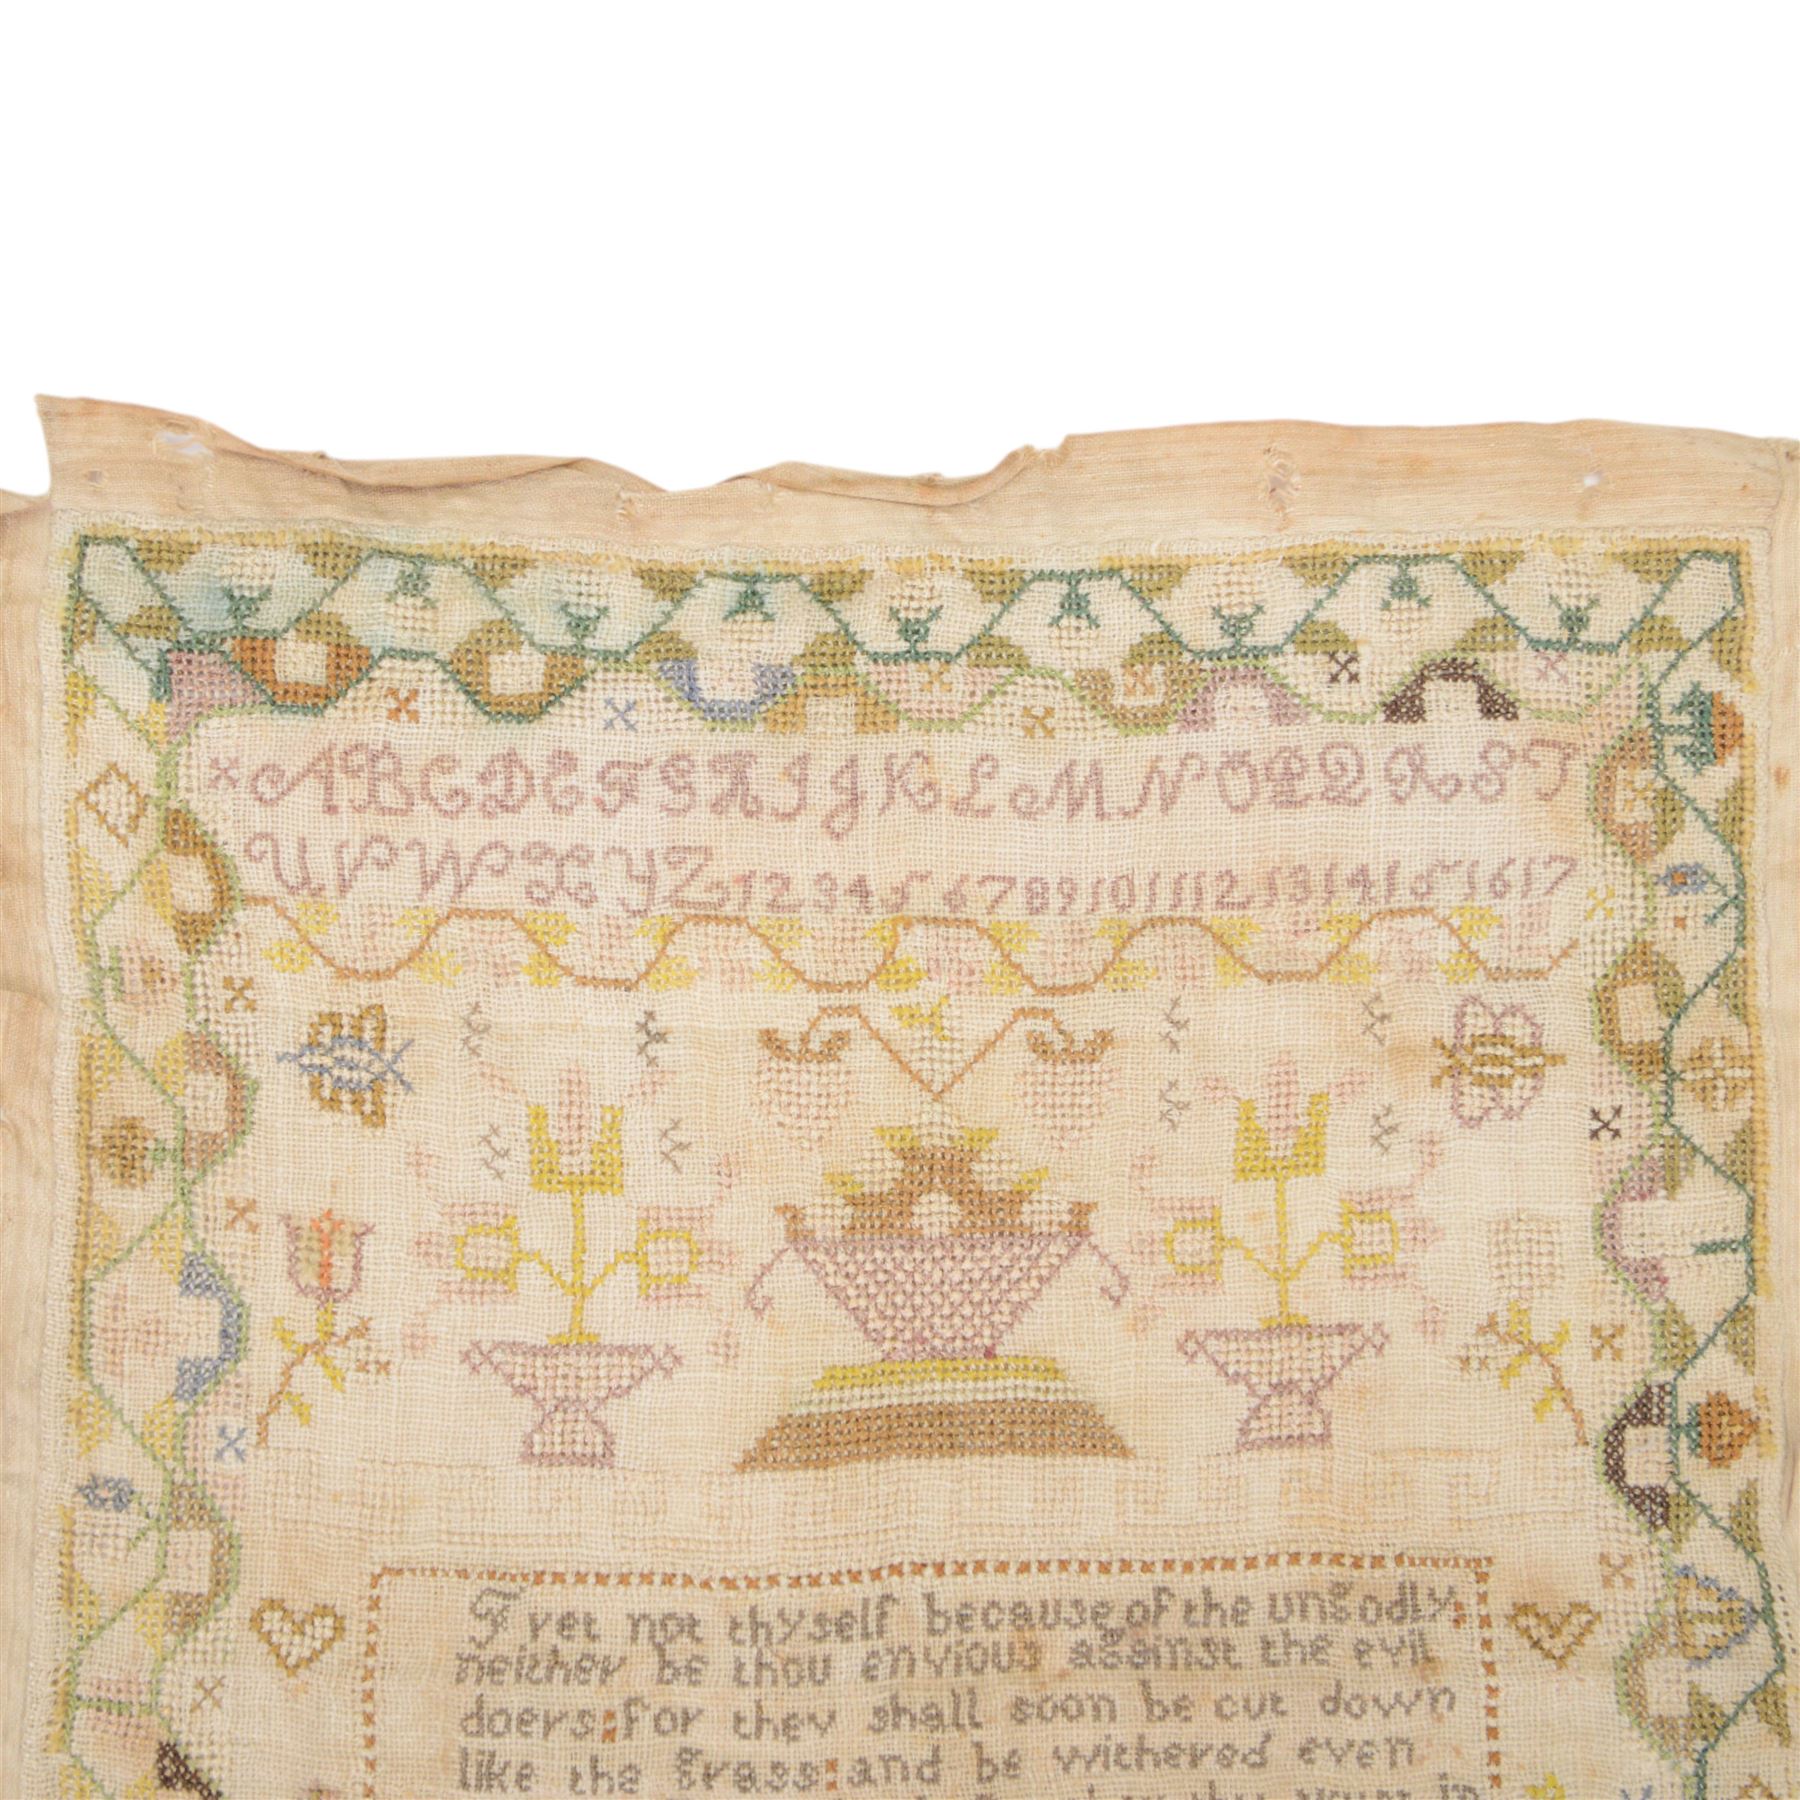 A B C D E F G H I J K L M N O P Q R S T
U V W X Y Z 1 2 3 4 5 6 7 8 9 10 11 12 13 14 15 16 17
Fret not thyself because of the ungodly:
neither be thou envious against the evil
doers: for they shall soon be cut down
like the grass: and be withered even